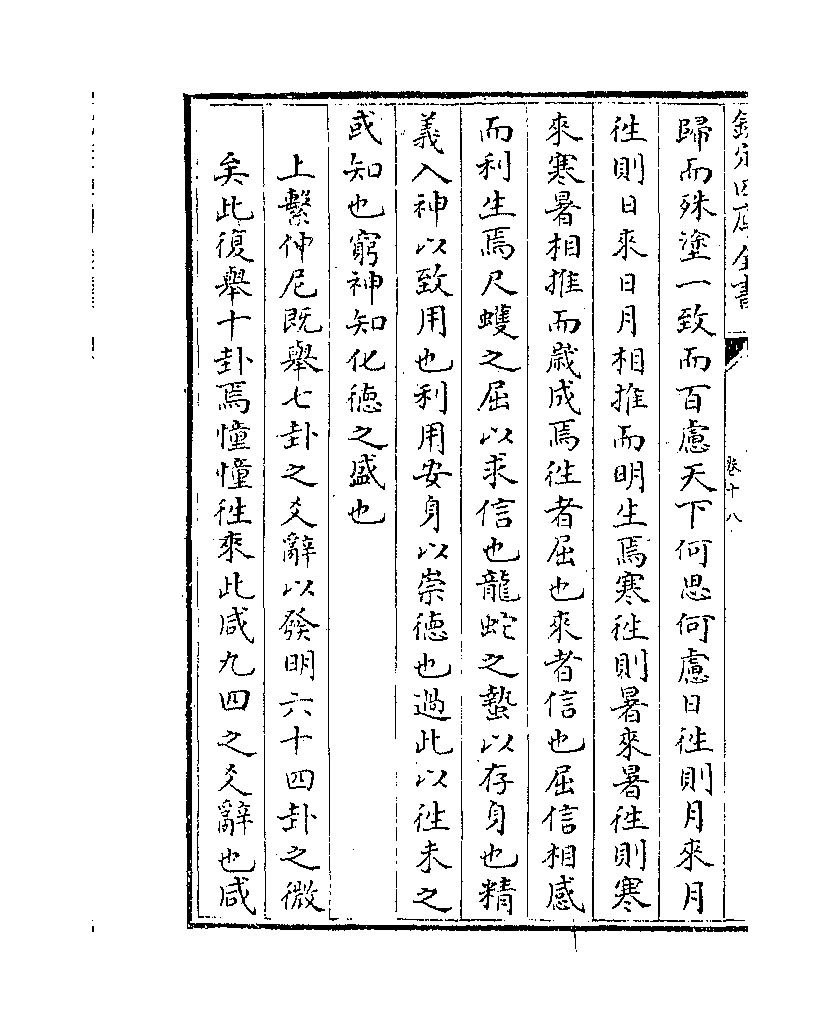 欽定四庫全書
卷十八
歸而殊塗一致而百慮天下何思何慮日徃則月來月
徃則日來日月相推而明生焉寒徃則暑來暑徃則寒
來寒暑相推而歲成焉徃者屈也來者信也屈信相感
而利生焉尺蠖之屈以求信也龍蛇之蟄以存身也精
義入神以致用也利用安身以崇德也過此以徃未之
或知也窮神知化德之盛也
上繫仲尼既舉七卦之爻辭以發明六十四卦之微
矣此復舉十卦焉憧憧徃來此咸九四之爻辭也咸